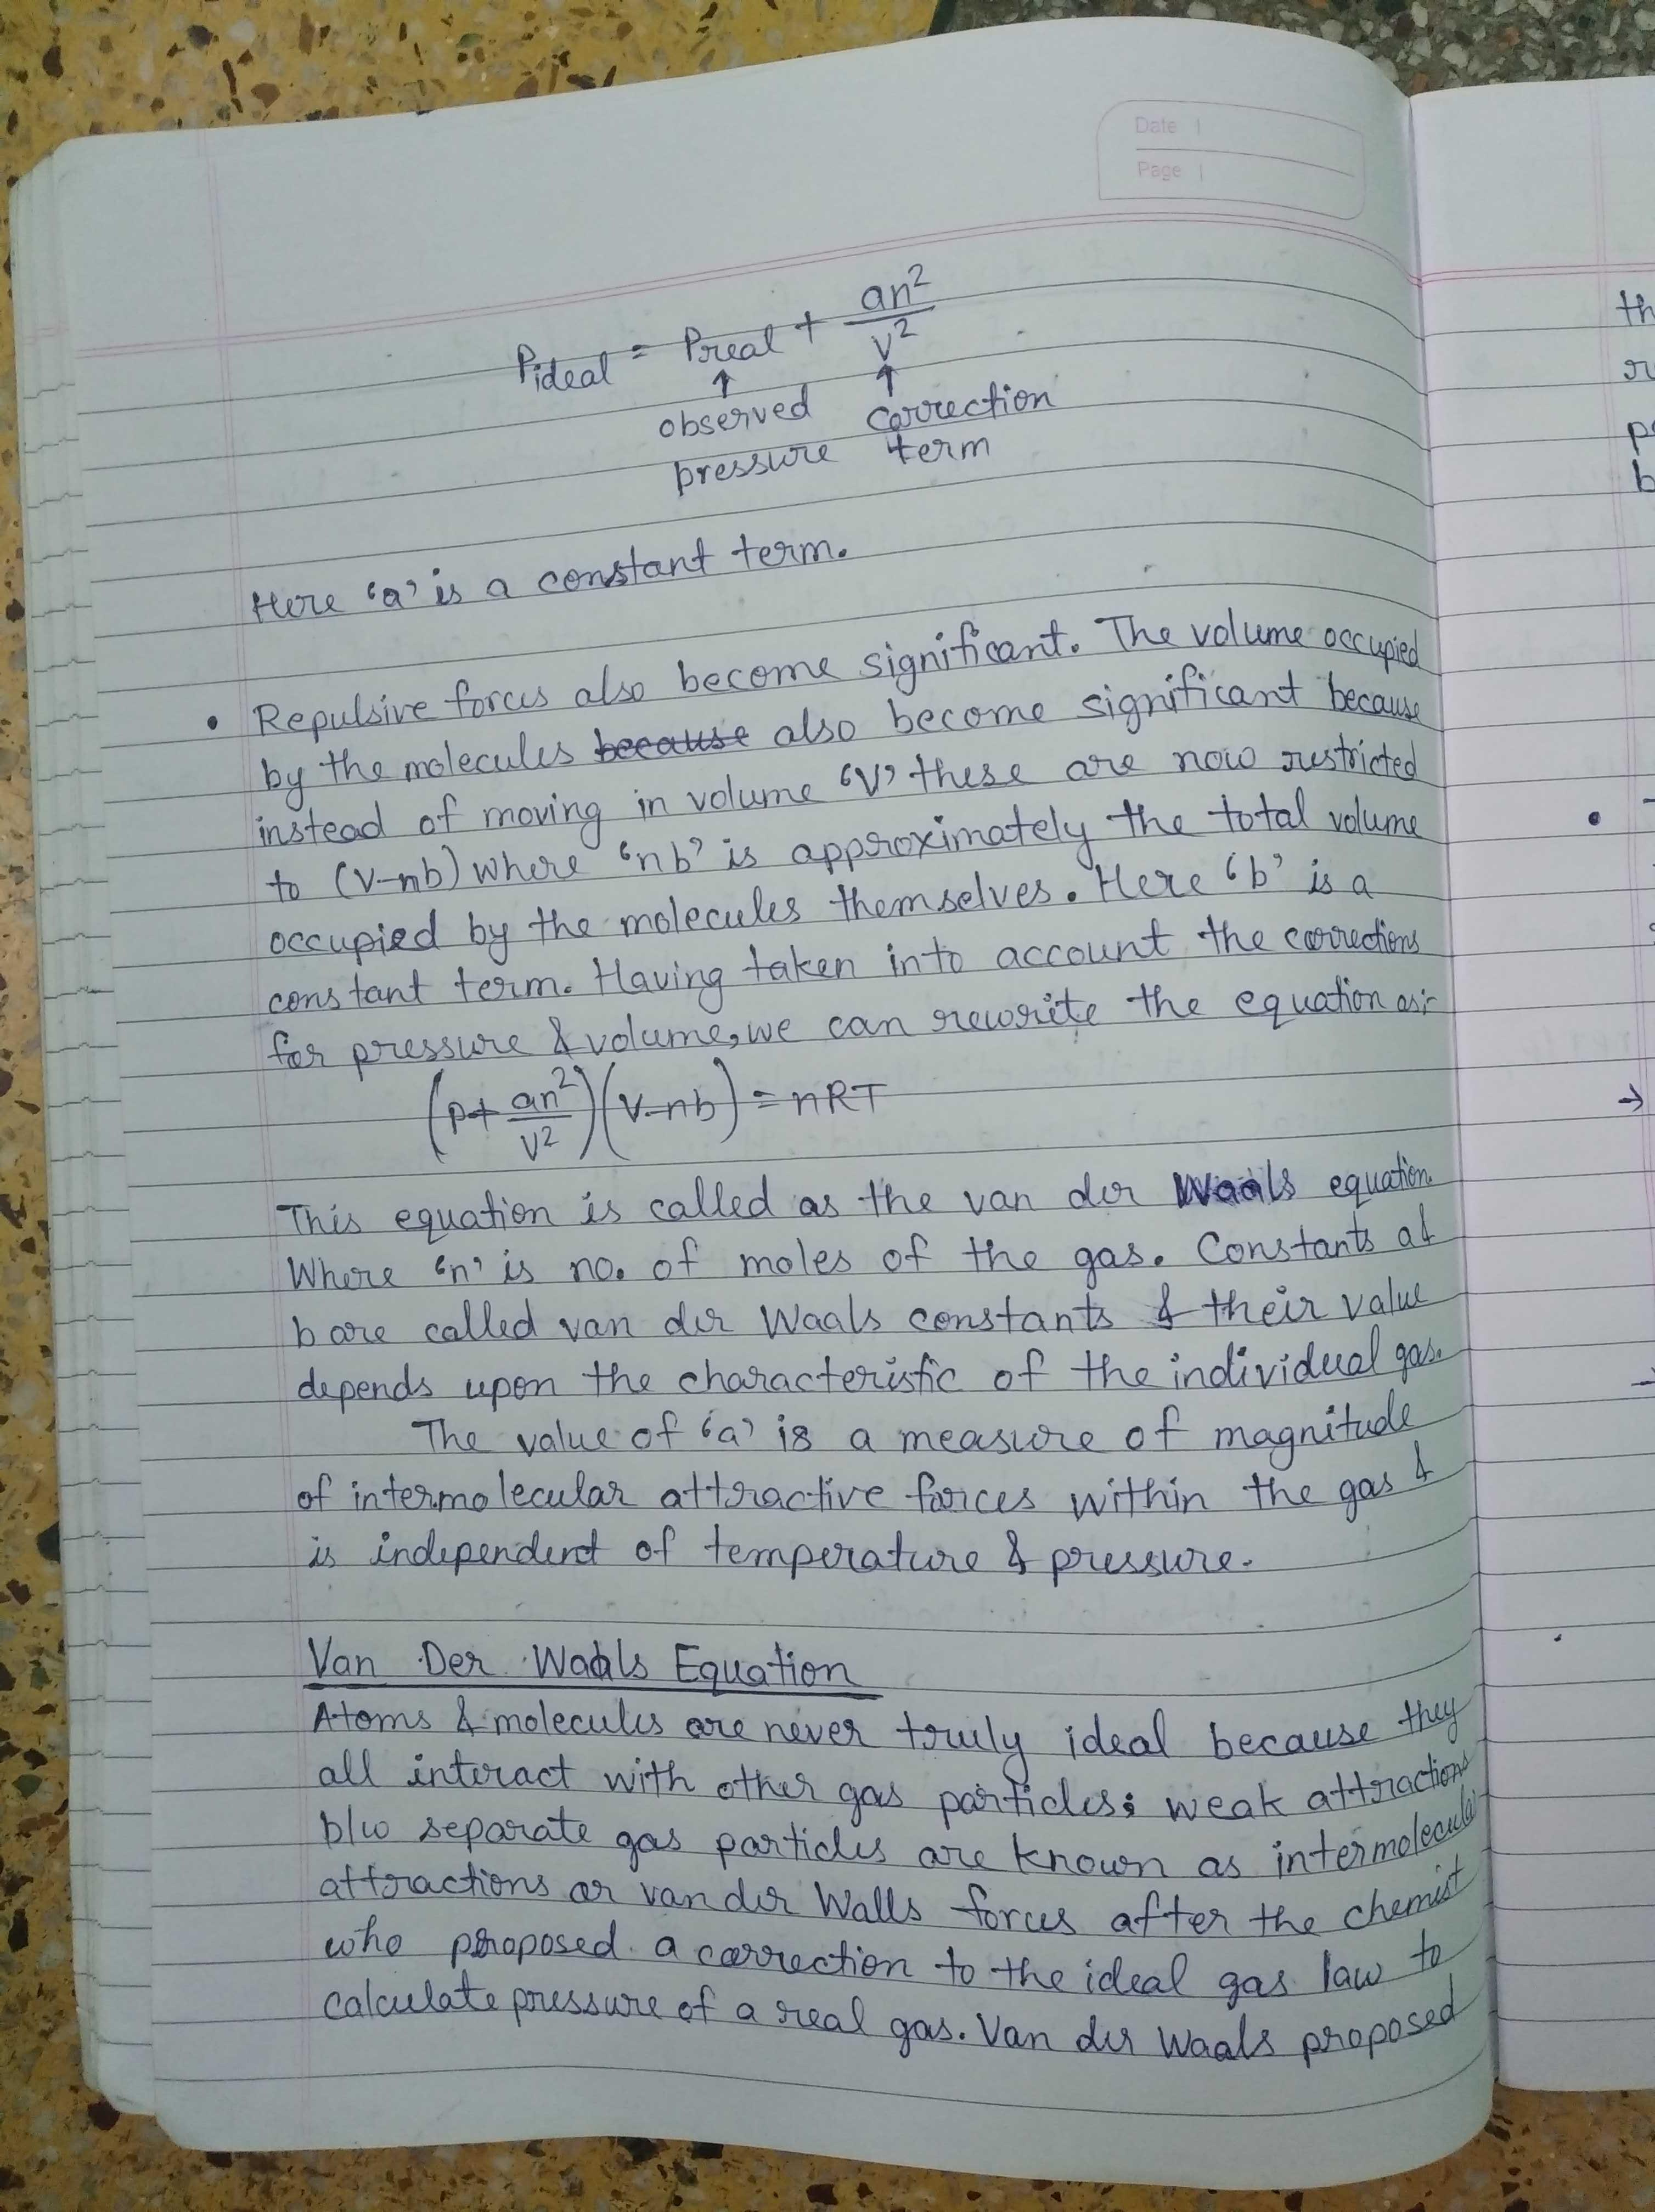 Date |
Page |
Pideal = Preal + an²/V²
↑ ↑
observed correction
pressure term
Here 'a' is a constant term.
• Repulsive forces also become significant. The volume occupied
by the molecules ~~because~~ also become significant because
instead of moving in volume 'V' these are now restricted
to (V-nb) where 'nb' is approximately the total volume
occupied by the molecules themselves. Here 'b' is a
constant term. Having taken into account the corrections
for pressure & volume, we can rewrite the equation as:-
(P + an²/V²)(V-nb) = nRT
This equation is called as the van der Waals equation.
Where 'n' is no. of moles of the gas. Constants a &
b are called van der Waals constants & their value
depends upon the characteristic of the individual gas.
The value of 'a' is a measure of magnitude
of intermolecular attractive forces within the gas &
is independent of temperature & pressure.
Van Der Waals Equation
Atoms & molecules are never truly ideal because they
all interact with other gas particles; weak attractions
b/w separate gas particles are known as intermolecular
attractions or van der Walls forces after the chemist
who proposed a correction to the ideal gas law to
calculate pressure of a real gas. Van der Waals proposed